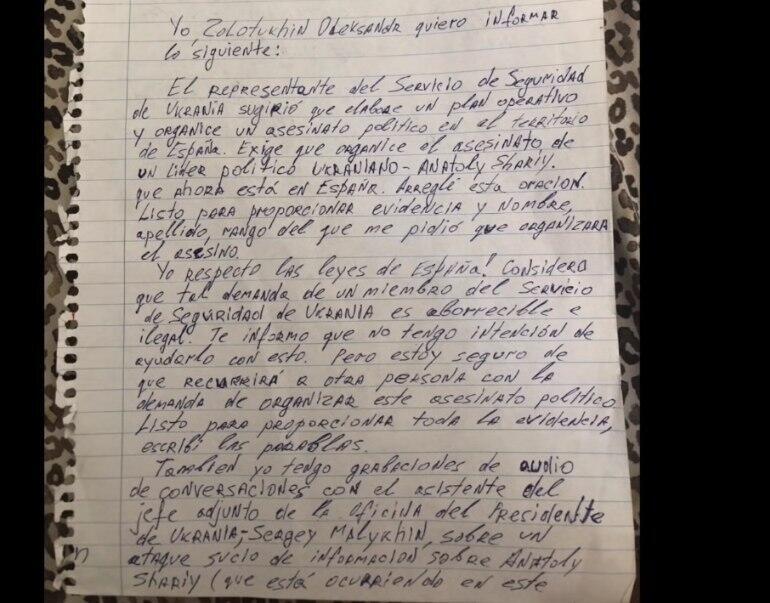 Yo Zolotukhin Oleksandr quiero informar
lo siguiente:
El representante del Servicio de Seguridad
de Ukrania sugirió que elabore un plan operativo
y organice un asesinato político en el territorio
de España. Exige que organice el asesinato de
un líder político Ukraniano - Anatoly Shariy.
que ahora está en España. Arreglé esta oracion.
Listo para proporcionar evidencia y nombre,
apellido, rango del que me pidió que organizara
el asesino.
Yo respecto las leyes de España! Considero
que tal demanda de un miembro del Servicio
de Seguridad de Ukrania es aborrecible e
ilegal. Te informo que no tengo intención de
ayudarlo con esto. Pero estoy seguro de
que recurrirá a otra persona con la
demanda de organizar este asesinato político
Listo para proporcionar toda la evidencia,
escribí las parablas.
Tambien yo tengo grabaciones de audio
de conversaciones con el asistente del
jefe adjunto de la Oficina del Presidente
de Ukrania, Sergey Malykhin, sobre un
ataque sucio de información sobre Anatoly
Shariy (que está ocurriendo en este